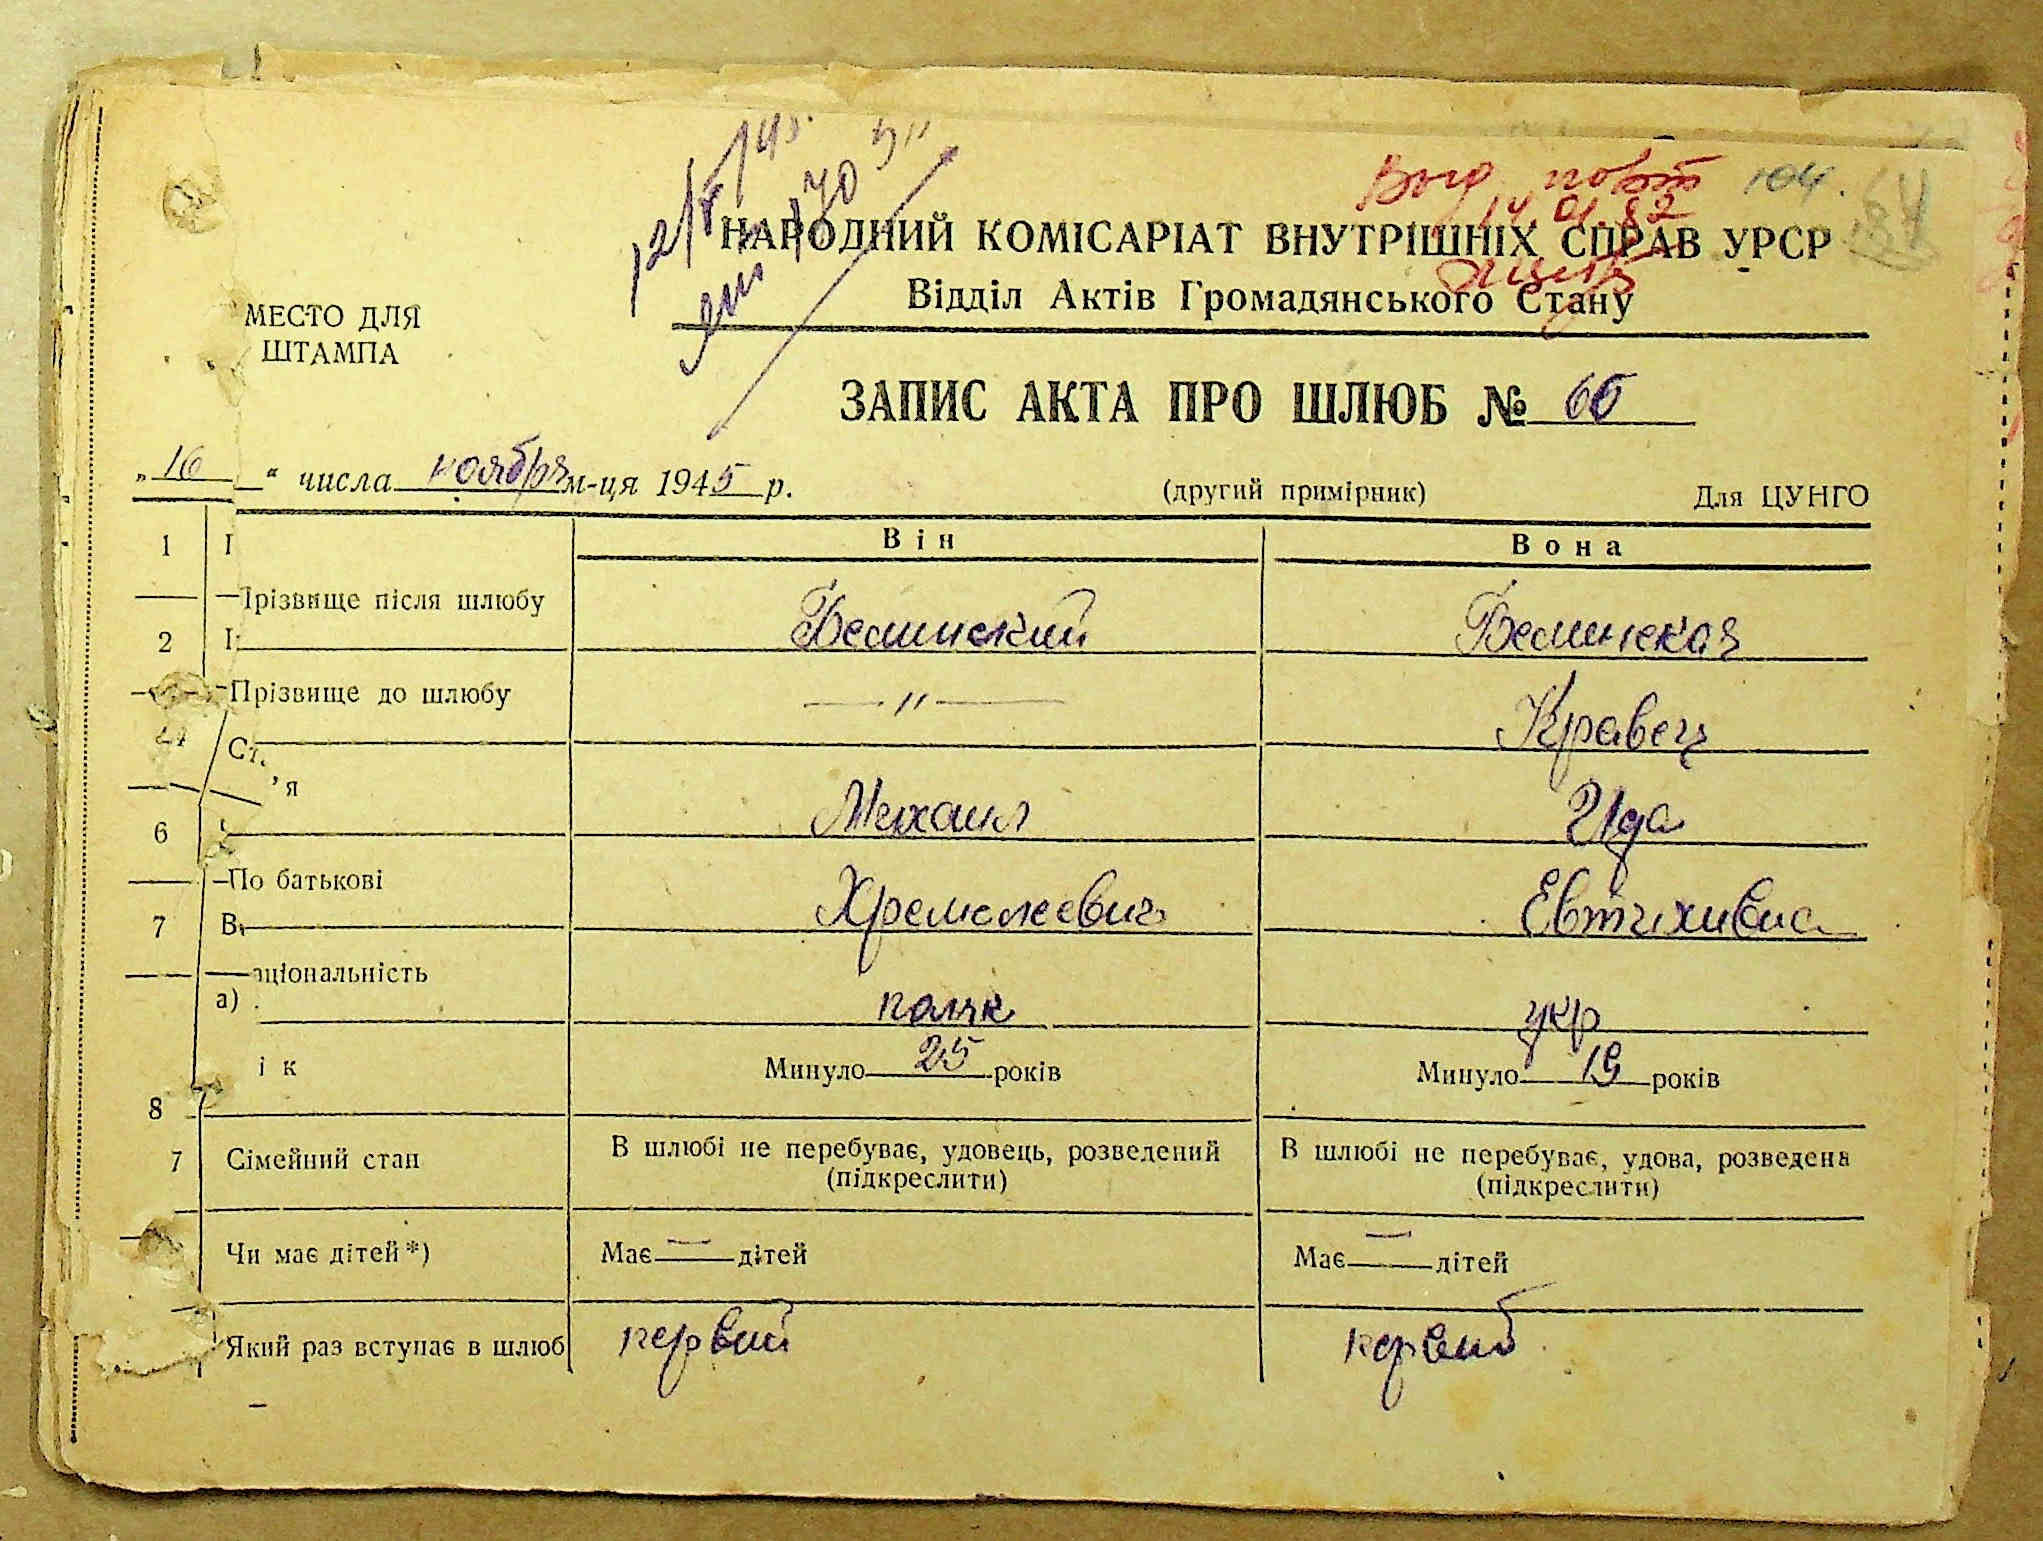 104.
Выд. повт
14.01.82
НАРОДНИЙ КОМІСАРІАТ ВНУТРІШНІХ СПРАВ УРСР
Відділ Актів Громадянського Стану
МЕСТО ДЛЯ
ШТАМПА
ЗАПИС АКТА ПРО ШЛЮБ №
„16“ числа ноября м-ця 1945 р.
(другий примірник) Для ЦУНГО
1 Він Вона
Прізвище після шлюбу Белинский Белинская
2
Прізвище до шлюбу —„— Кравец
Михаил Ида
6
По батькові
7
ціональність поляк укр
а)
ік Минуло 25 років Минуло 19 років
8
7 Сімейний стан В шлюбі не перебуває, удовець, розведений (підкреслити) В шлюбі не перебуває, удова, розведена (підкреслити)
Чи має дітей*) Має — дітей Має — дітей
Який раз вступає в шлюб первый